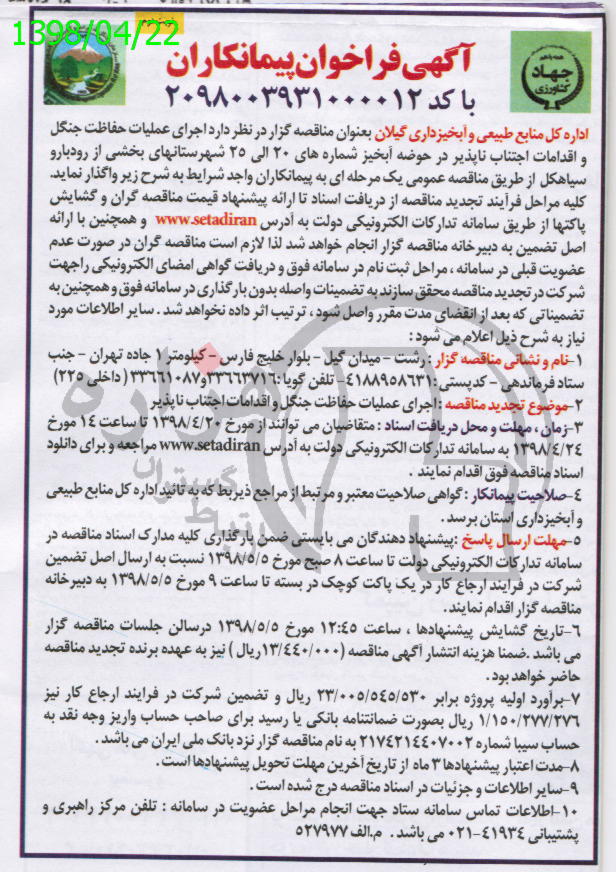 1398/04/22
نوبت دوم
آگهی فراخوان پیمانکاران
با کد ۲۰۹۸۰۰۳۹۳۱۰۰۰۰۱۲
همه با هم
جهاد
کشاورزی
اداره کل منابع طبیعی و آبخیزداری گیلان بعنوان مناقصه گزار در نظر دارد اجرای عملیات حفاظت جنگل
و اقدامات اجتناب ناپذیر در حوضه آبخیز شماره های ۲۰ الی ۲۵ شهرستانهای بخشی از رودبارو
سیاهکل از طریق مناقصه عمومی یک مرحله ای به پیمانکاران واجد شرایط به شرح زیر واگذار نماید.
کلیه مراحل فرآیند تجدید مناقصه از دریافت اسناد تا ارائه پیشنهاد قیمت مناقصه گران و گشایش
پاکتها از طریق سامانه تدارکات الکترونیکی دولت به آدرس www.setadiran و همچنین با ارائه
اصل تضمین به دبیرخانه مناقصه گزار انجام خواهد شد لذا لازم است مناقصه گران در صورت عدم
عضویت قبلی در سامانه ، مراحل ثبت نام در سامانه فوق و دریافت گواهی امضای الکترونیکی راجهت
شرکت در تجدید مناقصه محقق سازند به تضمینات واصله بدون بارگذاری در سامانه فوق و همچنین به
تضمیناتی که بعد از انقضای مدت مقرر واصل شود ، ترتیب اثر داده نخواهد شد . سایر اطلاعات مورد
نیاز به شرح ذیل اعلام می شود :
۱-نام و نشانی مناقصه گزار : رشت - میدان گیل - بلوار خلیج فارس - کیلومتر۱ جاده تهران - جنب
ستاد فرماندهی - کدپستی : ۴۱۸۸۹۵۸۶۳۱- تلفن گویا : ۳۳۶۶۳۷۱۶و۳۳۶۶۱۰۸۷ ( داخلی ۲۲۵)
۲-موضوع تجدید مناقصه : اجرای عملیات حفاظت جنگل و اقدامات اجتناب ناپذیر
۳-زمان ، مهلت و محل دریافت اسناد : متقاضیان می توانند از مورخ ۱۳۹۸/۴/۲۰ تا ساعت ۱۴ مورخ
۱۳۹۸/۴/۲۴ به سامانه تدارکات الکترونیکی دولت به آدرس www.setadiran مراجعه و برای دانلود
اسناد مناقصه فوق اقدام نمایند .
۴-صلاحیت پیمانکار : گواهی صلاحیت معتبر و مرتبط از مراجع ذیربط که به تائید اداره کل منابع طبیعی
و آبخیزداری استان برسد .
۵-مهلت ارسال پاسخ : پیشنهاد دهندگان می بایستی ضمن بارگذاری کلیه مدارک اسناد مناقصه در
سامانه تدارکات الکترونیکی دولت تا ساعت ۸ صبح مورخ ۱۳۹۸/۵/۵ نسبت به ارسال اصل تضمین
شرکت در فرایند ارجاع کار در یک پاکت کوچک در بسته تا ساعت ۹ مورخ ۱۳۹۸/۵/۵ به دبیرخانه
مناقصه گزار اقدام نمایند.
۶-تاریخ گشایش پیشنهادها ، ساعت ۱۲:۴۵ مورخ ۱۳۹۸/۵/۵ درسالن جلسات مناقصه گزار
می باشد .ضمنا هزینه انتشار آگهی مناقصه (۱۳/۴۴۰/۰۰۰ریال ) نیز به عهده برنده تجدید مناقصه
حاضر خواهد بود .
۷-برآورد اولیه پروژه برابر ۲۳/۰۰۵/۵۴۵/۵۳۰ ریال و تضمین شرکت در فرایند ارجاع کار نیز
۱/۱۵۰/۲۷۷/۲۷۶ ریال بصورت ضمانتنامه بانکی یا رسید برای صاحب حساب واریز وجه نقد به
حساب سیبا شماره ۲۱۷۴۲۱۴۴۰۷۰۰۲ به نام مناقصه گزار نزد بانک ملی ایران می باشد .
۸-مدت اعتبار پیشنهادها ۳ ماه از تاریخ آخرین مهلت تحویل پیشنهادها است .
۹-سایر اطلاعات و جزئیات در اسناد مناقصه درج شده است .
۱۰-اطلاعات تماس سامانه ستاد جهت انجام مراحل عضویت در سامانه : تلفن مرکز راهبری و
پشتیبانی ۴۱۹۳۴-۰۲۱ می باشد . م.الف ۵۲۷۹۷۷